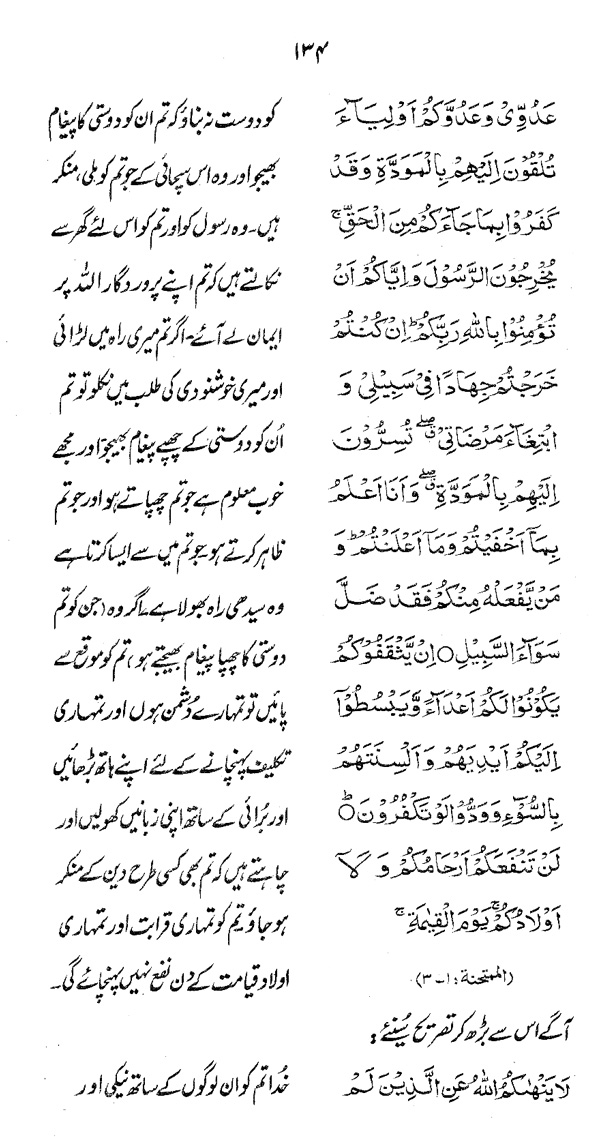 ۱۳۴
عَدُوِّیْ وَعَدُوَّكُمْ اَوْلِیَآءَ
تُلْقُوْنَ اِلَیْهِمْ بِالْمَوَدَّةِ وَقَدْ
كَفَرُوْا بِمَا جَآءَكُمْ مِنَ الْحَقِّ ۚ
یُخْرِجُوْنَ الرَّسُوْلَ وَاِیَّاكُمْ اَنْ
تُؤْمِنُوْا بِاللهِ رَبِّكُمْ ؕ اِنْ كُنْتُمْ
خَرَجْتُمْ جِهَادًا فِیْ سَبِیْلِیْ وَ
ابْتِغَآءَ مَرْضَاتِیْ ۖۗ تُسِرُّوْنَ
اِلَیْهِمْ بِالْمَوَدَّةِ ۖۗ وَاَنَا اَعْلَمُ
بِمَآ اَخْفَیْتُمْ وَمَآ اَعْلَنْتُمْ ؕ وَ
مَنْ یَّفْعَلْهُ مِنْكُمْ فَقَدْ ضَلَّ
سَوَآءَ السَّبِیْلِ ○ اِنْ یَّثْقَفُوْكُمْ
یَكُوْنُوْا لَكُمْ اَعْدَآءً وَّیَبْسُطُوْآ
اِلَیْكُمْ اَیْدِیَهُمْ وَاَلْسِنَتَهُمْ
بِالسُّوْٓءِ وَوَدُّوْا لَوْ تَكْفُرُوْنَ ○ؕ
لَنْ تَنْفَعَكُمْ اَرْحَامُكُمْ وَ لَآ
اَوْلَادُكُمْ ۚ یَوْمَ الْقِیٰمَةِ ۚ
(الممتحنة: ۱-۳)
کو دوست نہ بناؤ کہ تم ان کو دوستی کا پیغام
بھیجو اور وہ اس سچائی کے جو تم کو ملی، منکر
ہیں۔ وہ رسول کو اور تم کو اس لئے گھر سے
نکالتے ہیں کہ تم اپنے پروردگار اللہ پر
ایمان لے آئے۔ اگر تم میری راہ میں لڑائی
اور میری خوشنودی کی طلب میں نکلو تو تم
اُن کو دوستی کے چھپے پیغام بھیجو، اور مجھے
خوب معلوم ہے جو تم چھپاتے ہو اور جو تم
ظاہر کرتے ہو۔ جو تم میں سے ایسا کرتا ہے
وہ سیدھی راہ بھولا ہے، اگر وہ (جن کو تم
دوستی کا چھپا پیغام بھیجتے ہو) تم کو موقع سے
پائیں تو تمہارے دُشمن ہوں اور تمہاری
تکلیف پہنچانے کے لئے اپنے ہاتھ بڑھائیں
اور بُرائی کے ساتھ اپنی زبانیں کھولیں اور
چاہتے ہیں کہ تم بھی کسی طرح دین کے منکر
ہو جاؤ۔ تم کو تمہاری قرابت اور تمہاری
اولاد قیامت کے دن نفع نہیں پہنچائے گی۔
آگے اس سے بڑھ کر تصریح سُنئے:
لَا یَنْهٰىكُمُ اللهُ عَنِ الَّذِیْنَ لَمْ
خُدا تم کو ان لوگوں کے ساتھ نیکی اور